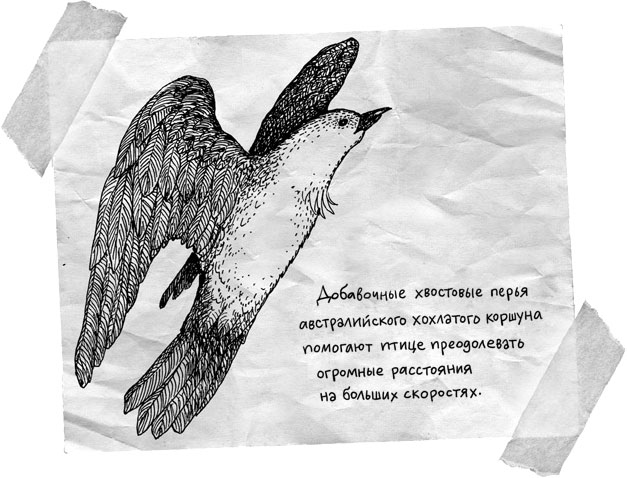 Добавочные хвостовые перья
австралийского хохлатого коршуна
помогают птице преодолевать
огромные расстояния
на больших скоростях.